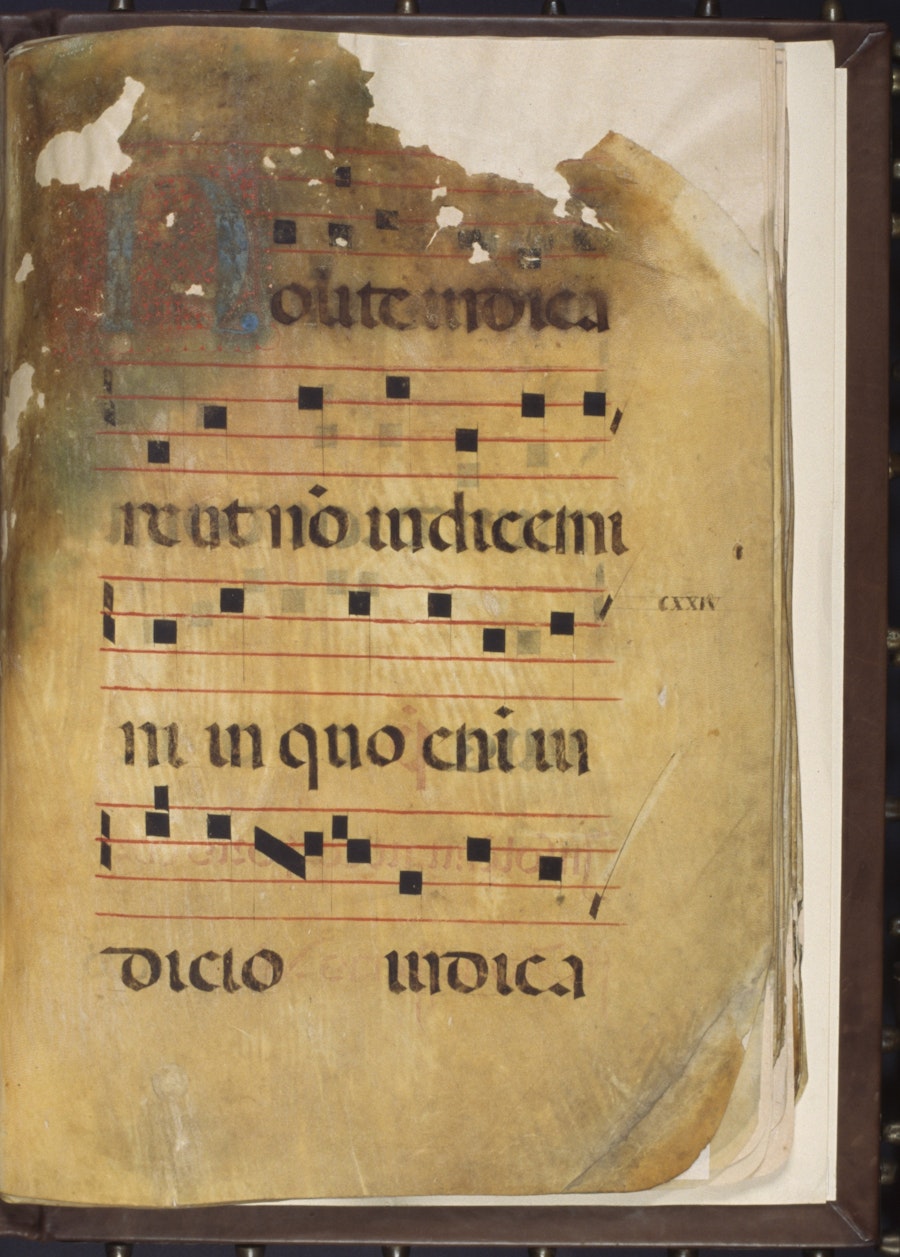 Nolite iudica
re ut nō iudicemi
CXXIV
ni in quo eni iu
dicio iudica